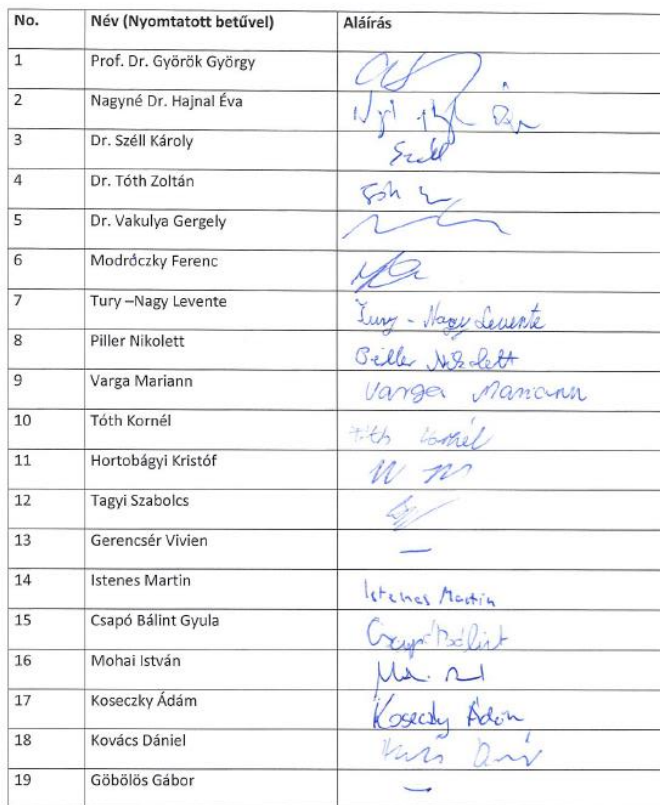 No. Név (Nyomtatott betűvel) Aláírás
1 Prof. Dr. Györök György
2 Nagyné Dr. Hajnal Éva
3 Dr. Széll Károly Széll
4 Dr. Tóth Zoltán Tóth
5 Dr. Vakulya Gergely
6 Modróczky Ferenc
7 Tury –Nagy Levente Tury - Nagy Levente
8 Piller Nikolett Piller Nikolett
9 Varga Mariann Varga Mariann
10 Tóth Kornél Tóth Kornél
11 Hortobágyi Kristóf
12 Tagyi Szabolcs
13 Gerencsér Vivien —
14 Istenes Martin Istenes Martin
15 Csapó Bálint Gyula Csapó Bálint
16 Mohai István
17 Koseczky Ádám Koseczky Ádám
18 Kovács Dániel
19 Göbölös Gábor —